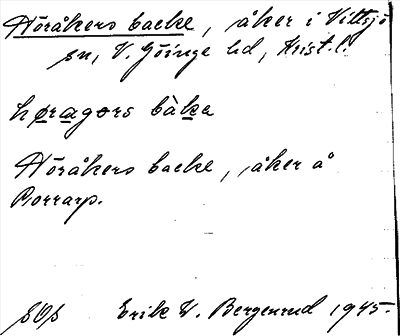 Höråkers backe, åker i Vittsjö
sn, V. Göinge hd, Krist. l.
høragərs bàka
Höråkers backe, åker å
Porrarp.
Erik W. Bergenrud 1945.